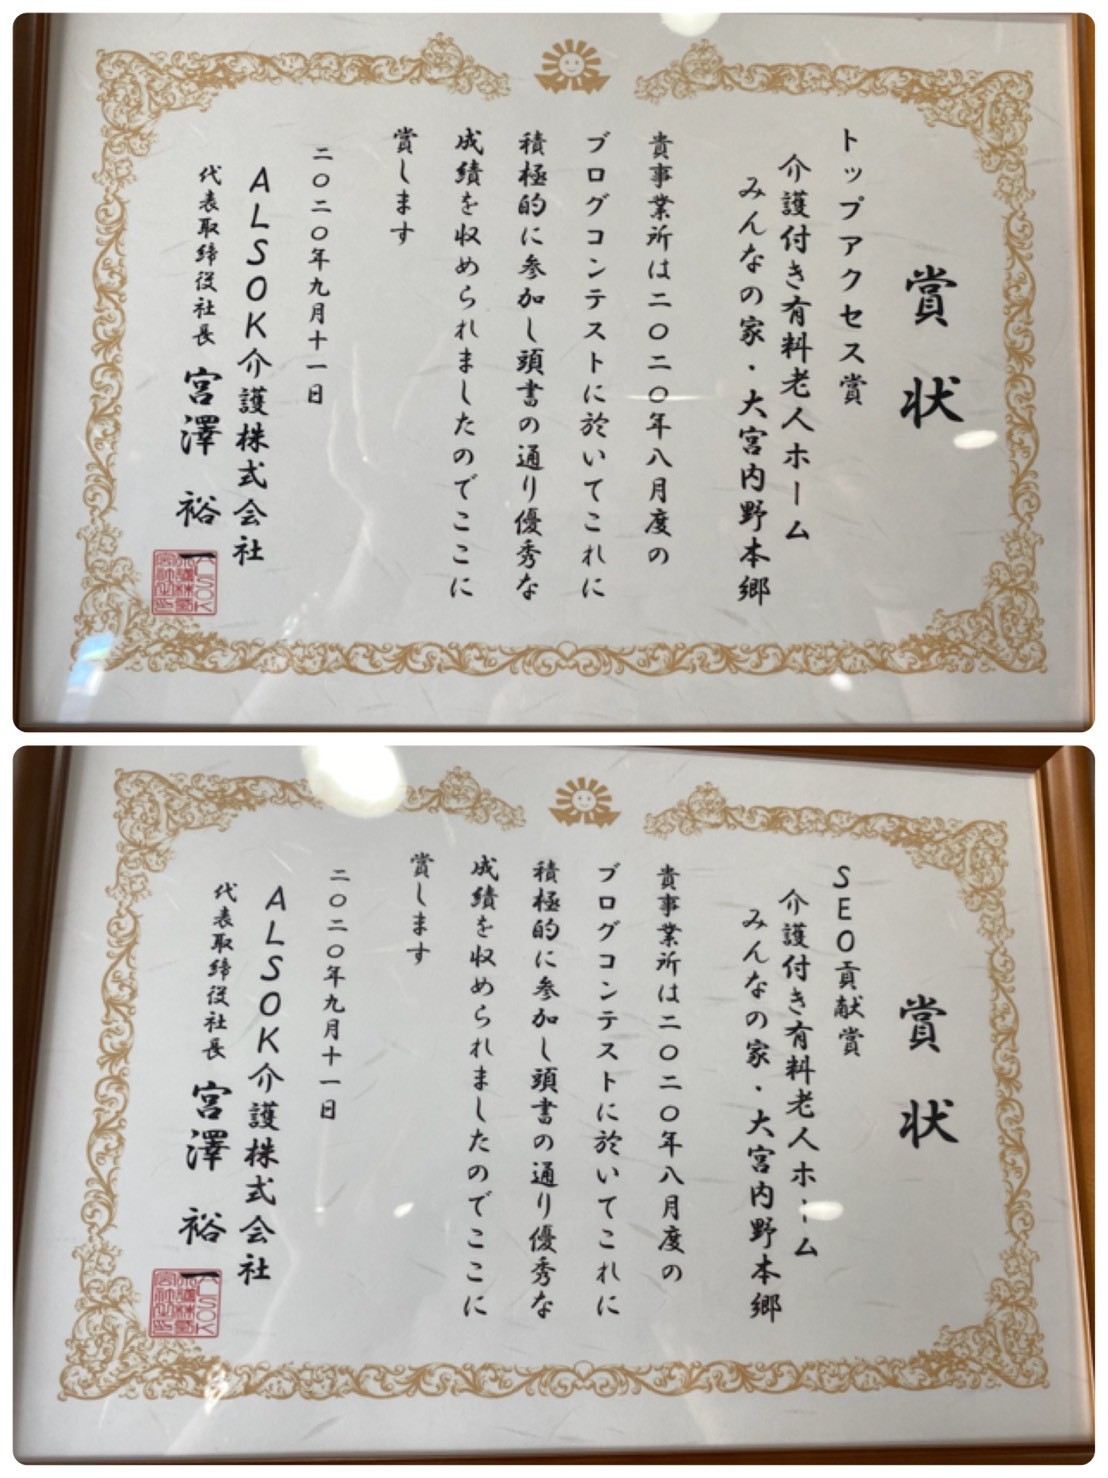 賞状
トップアクセス賞
介護付き有料老人ホーム
みんなの家・大宮内野本郷
貴事業所は二〇二〇年八月度の
ブログコンテストに於いてこれに
積極的に参加し頭書の通り優秀な
成績を収められましたのでここに
賞します
二〇二〇年九月十一日
ALSOK介護株式会社
代表取締役社長 宮澤 裕一
賞状
SEO貢献賞
介護付き有料老人ホーム
みんなの家・大宮内野本郷
貴事業所は二〇二〇年八月度の
ブログコンテストに於いてこれに
積極的に参加し頭書の通り優秀な
成績を収められましたのでここに
賞します
二〇二〇年九月十一日
ALSOK介護株式会社
代表取締役社長 宮澤 裕一